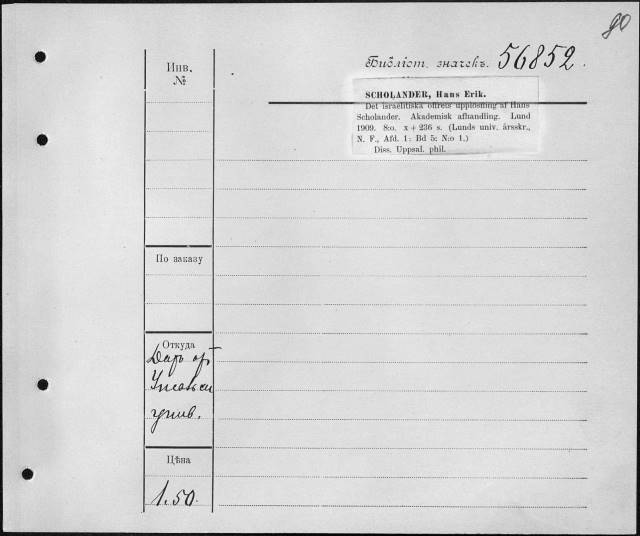 90
Библіот. значекъ. 56852.
Инв.
№
SCHOLANDER, Hans Erik.
Det israelitiska offrets upplösning af Hans
Scholander. Akademisk afhandling. Lund
1909. 8:o. x + 236 s. (Lunds univ. årsskr.,
N. F., Afd. 1: Bd 5: N:o 1.)
Diss. Upsal. phil.
По заказу
Откуда
Даръ от
унив.
Цѣна
1.50.